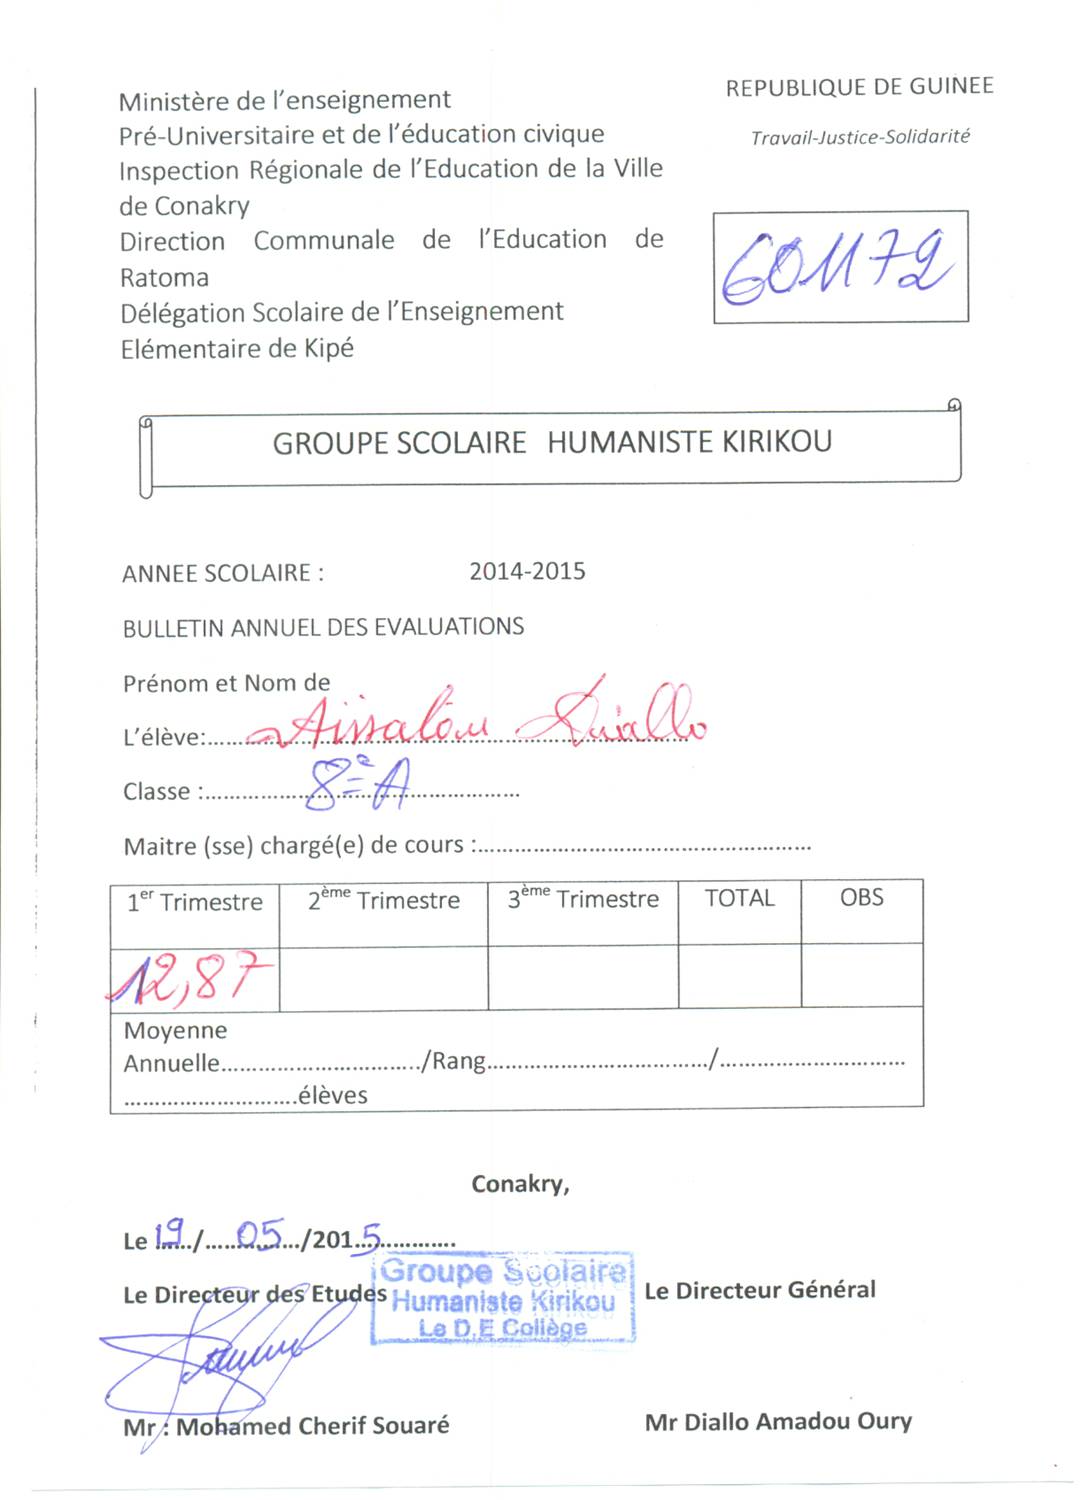 Ministère de l'enseignement
Pré-Universitaire et de l'éducation civique
Inspection Régionale de l'Education de la Ville
de Conakry
Direction Communale de l'Education de
Ratoma
Délégation Scolaire de l'Enseignement
Elémentaire de Kipé
REPUBLIQUE DE GUINEE
Travail-Justice-Solidarité
601172
GROUPE SCOLAIRE HUMANISTE KIRIKOU
ANNEE SCOLAIRE : 2014-2015
BULLETIN ANNUEL DES EVALUATIONS
Prénom et Nom de
L'élève:.....Aissatou Diallo
Classe :.....8e A.....
Maitre (sse) chargé(e) de cours :.....
1er Trimestre 2ème Trimestre 3ème Trimestre TOTAL OBS
12,87
Moyenne
Annuelle...../Rang...../.....
.....élèves
Conakry,
Le 19/.....05...../2015.....
Groupe Scolaire
Humaniste Kirikou
Le D.E Collège
Le Directeur des Etudes
Le Directeur Général
Mr : Mohamed Cherif Souaré
Mr Diallo Amadou Oury